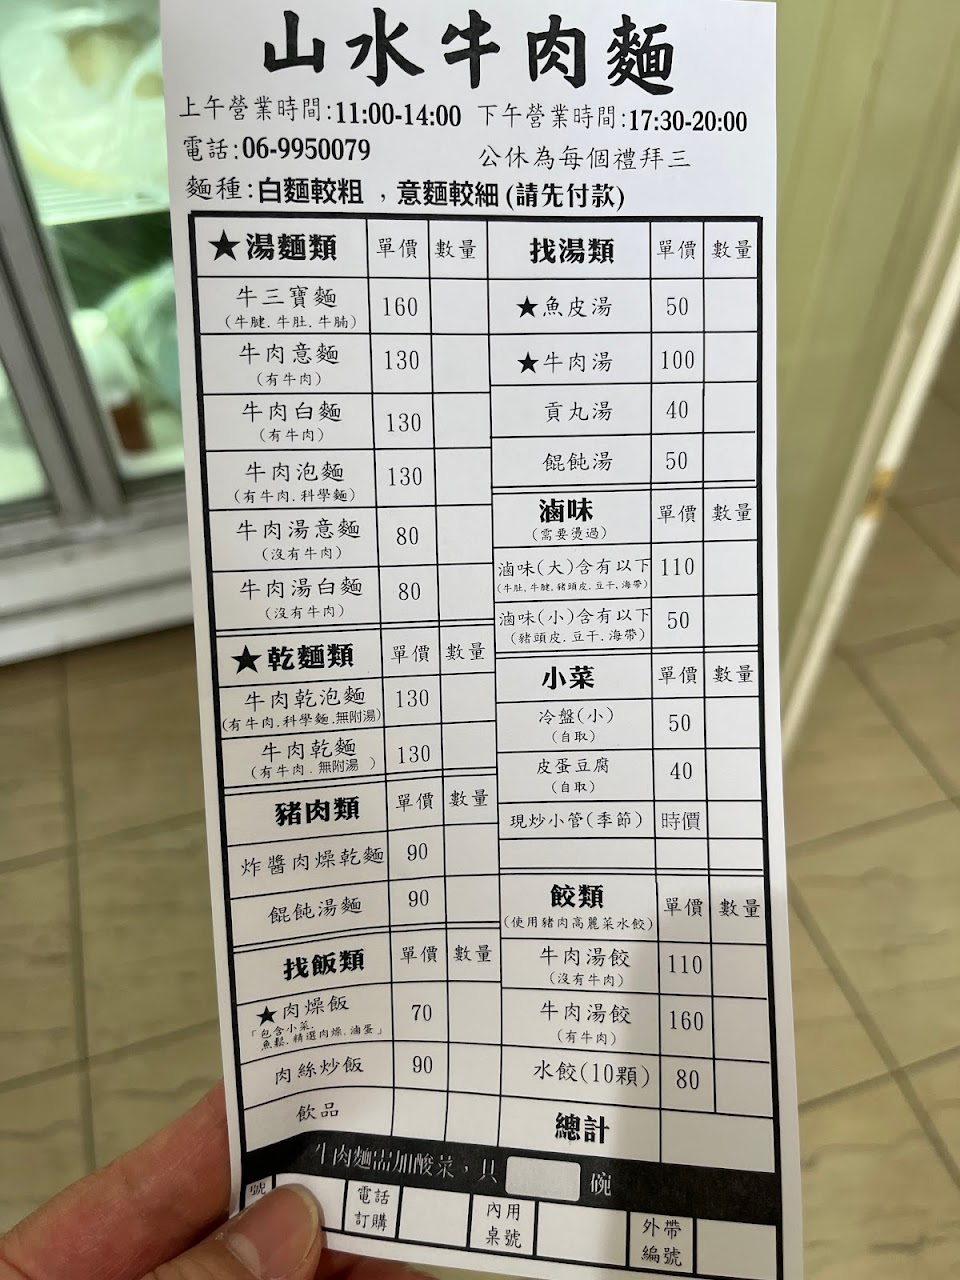 山水牛肉麵
上午營業時間:11:00-14:00 下午營業時間:17:30-20:00
電話:06-9950079 公休為每個禮拜三
麵種:白麵較粗，意麵較細(請先付款)
★湯麵類 單價 數量
牛三寶麵 160
(牛腱.牛肚.牛腩)
牛肉意麵 130
(有牛肉)
牛肉白麵 130
(有牛肉)
牛肉泡麵 130
(有牛肉.科學麵)
牛肉湯意麵 80
(沒有牛肉)
牛肉湯白麵 80
(沒有牛肉)
★乾麵類 單價 數量
牛肉乾泡麵 130
(有牛肉.科學麵.無附湯)
牛肉乾麵 130
(有牛肉.無附湯 )
豬肉類 單價 數量
炸醬肉燥乾麵 90
餛飩湯麵 90
找飯類 單價 數量
★肉燥飯 70
「包含小菜.
魚鬆.精選肉燥.滷蛋」
肉絲炒飯 90
飲品
找湯類 單價 數量
★魚皮湯 50
★牛肉湯 100
貢丸湯 40
餛飩湯 50
滷味 單價 數量
(需要燙過)
滷味(大)含有以下 110
(牛肚.牛腱.豬頭皮.豆干.海帶)
滷味(小)含有以下 50
(豬頭皮.豆干.海帶)
小菜 單價 數量
冷盤(小) 50
(自取)
皮蛋豆腐 40
(自取)
現炒小管(季節) 時價
餃類 單價 數量
(使用豬肉高麗菜水餃)
牛肉湯餃 110
(沒有牛肉)
牛肉湯餃 160
(有牛肉)
水餃(10顆) 80
總計
牛肉麵需加酸菜，共 碗
號
電話
訂購
內用
桌號
外帶
編號